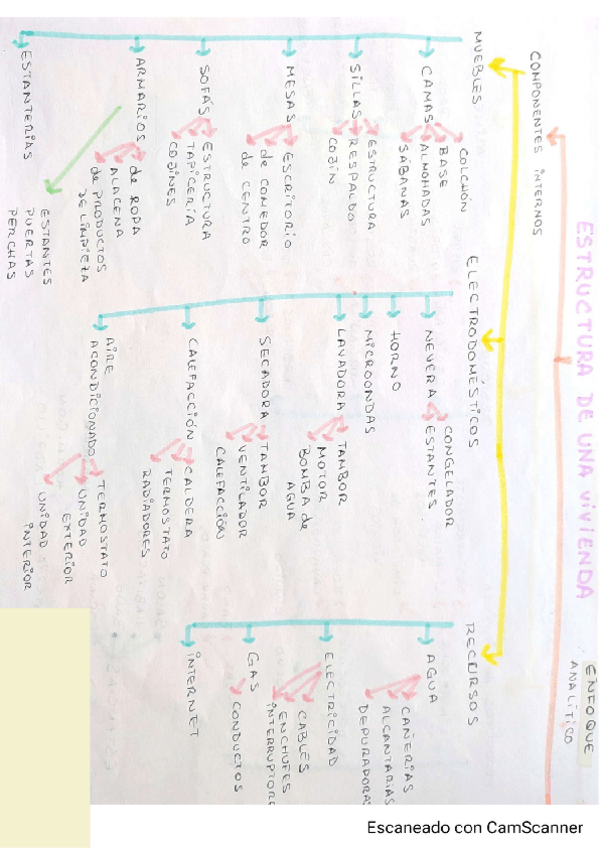 ENFOQUE
ANALÍTICO
ESTRUCTURA DE UNA VIVIENDA
COMPONENTES INTERNOS
MUEBLES
CAMAS
COLCHÓN
BASE
ALMOHADAS
SÁBANAS
SILLAS
ESTRUCTURA
RESPALDO
COJÍN
MESAS
ESCRITORIO
de COMEDOR
de CENTRO
SOFÁS
ESTRUCTURA
TAPICERÍA
COJINES
ARMARIOS
de ROPA
ALACENA
de PRODUCTOS
DE LIMPIEZA
ESTANTES
PUERTAS
PERCHAS
ESTANTERIAS
ELECTRODOMÉSTICOS
NEVERA
CONGELADOR
ESTANTES
HORNO
MICROONDAS
LAVADORA
TAMBOR
MOTOR
BOMBA de
AGUA
SECADORA
TAMBOR
VENTILADOR
CALEFACCIÓN
CALEFACCIÓN
CALDERA
TERMOSTATO
RADIADORES
AIRE
ACONDICIONADO
TERMOSTATO
UNIDAD
EXTERIOR
UNIDAD
INTERIOR
RECURSOS
AGUA
CAÑERIAS
ALCANTARIAS
DEPURADORA
ELECTRICIDAD
CABLES
ENCHUFES
INTERRUPTOR
GAS
CONDUCTOS
INTERNET
Escaneado con CamScanner